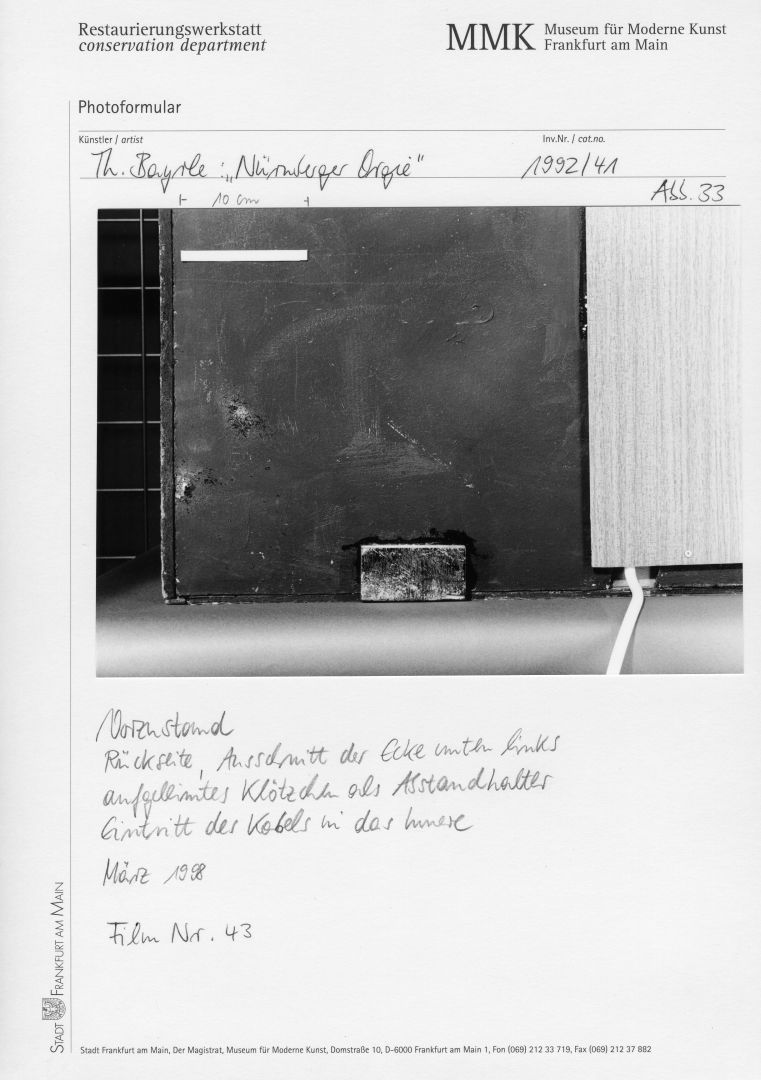 Restaurierungswerkstatt
conservation department
MMK Museum für Moderne Kunst
Frankfurt am Main
Photoformular
Künstler / artist
Inv.Nr. / cat.no.
Th. Bayrle: „Nürnberger Orgie"
1992/41
Abb. 33
10 cm
Vorzustand
Rückseite, Ausschnitt der Ecke unten links
aufgeleimtes Klötzchen als Abstandhalter
Eintritt des Kabels in das Innere
März 1998
Film Nr. 43
STADT FRANKFURT AM MAIN
Stadt Frankfurt am Main, Der Magistrat, Museum für Moderne Kunst, Domstraße 10, D-6000 Frankfurt am Main 1, Fon (069) 212 33 719, Fax (069) 212 37 882